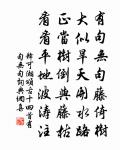 有句無句藤倚樹
大似旱天
正當樹倒與藤枯
看看平地波濤注
釋可湘頌古十四首有
句無句詞典網集